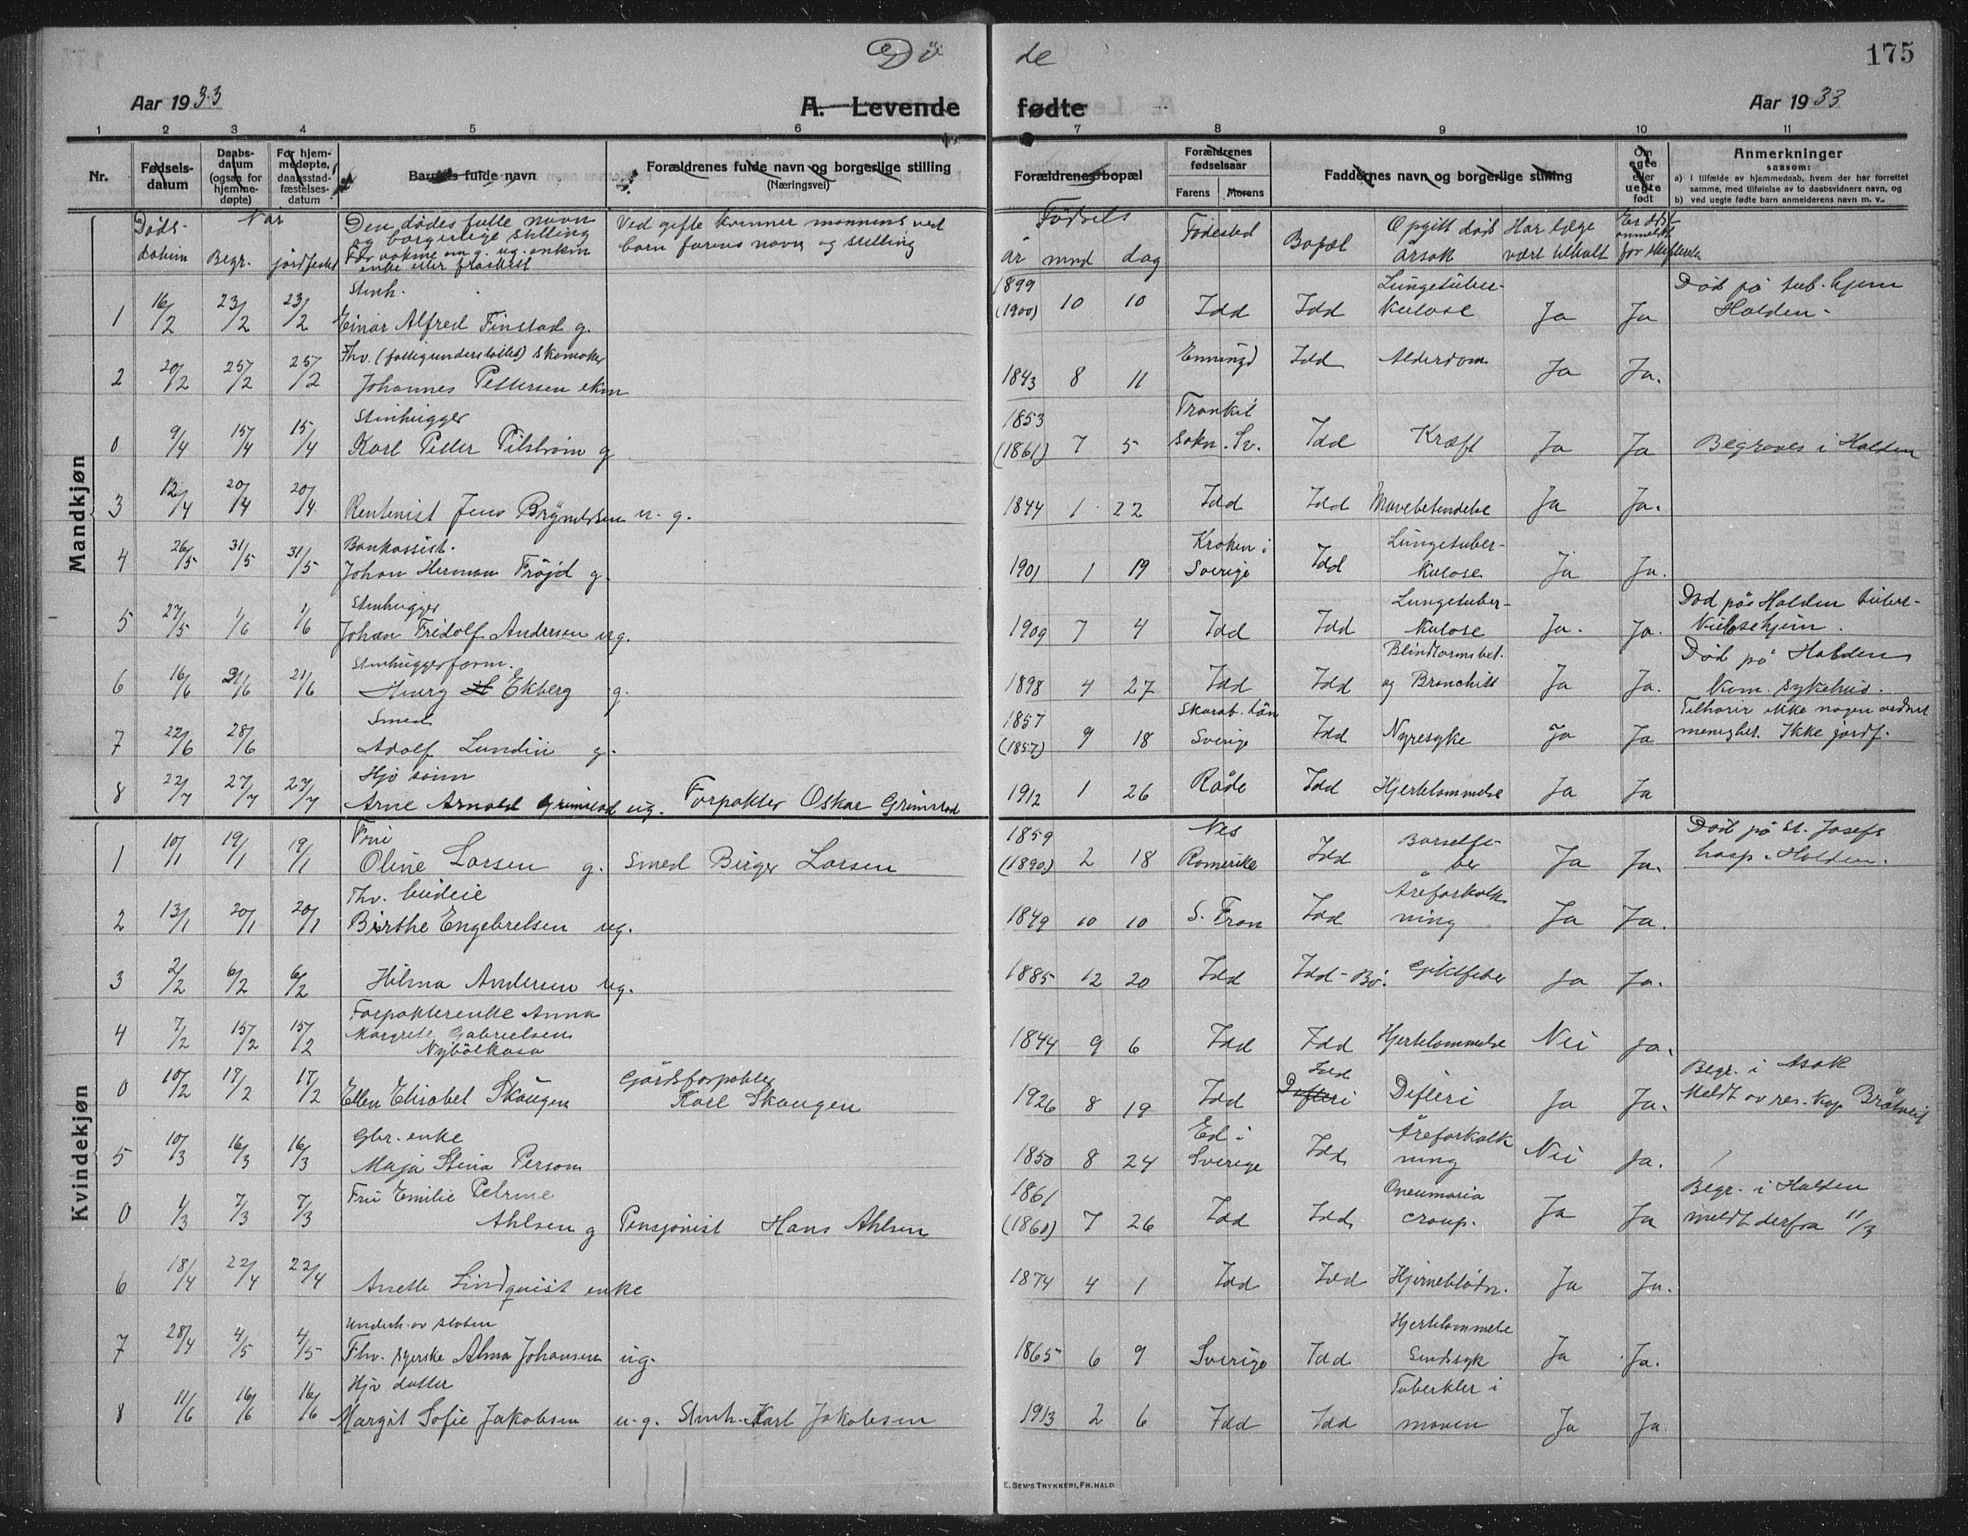 Dö de
175
Aar 1933
A. Levende fødte
Aar 1933
1 2 3 4 5 6 7 8 9 10 11
Nr.
Fødsels-datum
Daabs-datum (ogsaa for hjemme-døpte)
For hjem-medøpte, daabsstad-fæstelses-datum
Barnets fulde navn
Forældrenes fulde navn og borgerlige stilling (Næringsvei)
Forældrenes bopæl
Forældrenes fødselsaar
Farens Morens
Faddernes navn og borgerlige stilling
Om egte eller uegte født
Anmerkninger
saasom:
a) I tilfælde av hjemmedaab, hvem der har forrettet samme, med tilføielse av to daabsvidners navn, og
b) ved uegte fødte barn anmelderens navn m. v..
Døds-datum
Når
Begr. jordfestet
Den dødes fulle navn
og borgerlige stilling
For voksne om g. ug. enkm
enke eller fraskilt
Ved gifte kvinner mannens ved
barn farens navn og stilling
Fødsels
år mnd dag
Fødested
Bopæl
Opgitt døds årsak
Har læge vært tilkalt
Mandkjøn
1 16/2 23/2 23/2 Stenh. Einar Alfred Finstad g. 1899 (1900) 10 10 Idd Idd Lungetuber-kulose Ja Ja Død på tub. hjem Halden.
2 20/2 25/2 25/2 Fhv. (fattigunderstøttet) skomaker Johannes Pettersen ekm 1843 8 11 Enningd Idd Alderdom Ja Ja.
0 9/4 15/4 15/4 Stenhugger Karl Petter Pilstrøm g 1853 (1861) 7 5 Trankil Sokn. Sv. Idd Kræft Ja Ja Begraves i Halden
3 12/4 20/4 20/4 Rentenist Jens Bryndsen u. g. 1844 1 22 Idd Idd Mavebetendelse Ja Ja.
4 26/5 31/5 31/5 Bankassist. Johan Herman Fröjd g. 1901 1 19 Kroken i Sverige Idd Lungetuber-kulose Ja Ja.
5 27/5 1/6 1/6 Stenhugger Johan Fridolf Andersen ug. 1909 7 4 Idd Idd Lungetuber-kulose Ja. Ja. Død på Halden tuber-kulosehjem.
6 16/6 21/6 21/6 Stenhuggerform. Henry H Ekberg g. 1898 4 27 Idd Idd Blindtarmsbet. og Bronchitt Ja Ja. Død på Haldens Kom. sykehus.
7 22/6 28/6 Smed Adolf Lundin g. 1857 (1857) 9 18 Skarab. län Sverige Idd Nyresyke Ja Ja Tilhører ikke nogen ordnet menighet. Ikke jordf.
8 22/7 27/7 27/7 Hjv sønn Arne Arnold Grimstad ug. Forpakter Oskar Grimstad 1912 1 26 Råde Idd Hjertelammelse Ja Ja
Kvindekjøn
1 10/1 19/1 19/1 Frue Oline Larsen g. Smed Birger Larsen 1859 (1890) 2 18 Nes Romerike Idd Barselfe-ber Ja Ja. Død på St. Josefs hosp. i Halden.
2 13/1 20/1 20/1 Fhv. budeie Birthe Engebretsen ug. 1849 10 10 S. Fron Idd Åreforkalk-ning Ja Ja.
3 2/2 6/2 6/2 Hilma Andersen ug. 1885 12 20 Idd Idd-Bø. Giktfeber Ja Ja.
4 7/2 15/2 15/2 Forpakterenke Anna Margrete Gabrielsen Nybölkasa 1844 9 6 Idd Idd Hjertelammelse Nei Ja.
0 10/2 17/2 17/2 Ellen Elisabet Skaugen Gårdsforpakter Karl Skaugen 1926 8 19 Idd Difteri Idd Difteri Ja Ja. Begr. i Asak Meldt av res. kap
5 10/3 16/3 16/3 Gbr. enke Maja Stina Person 1850 8 24 Ed i Sverige Idd Åreforkalk-ning Nei Ja.
0 4/3 7/3 7/3 Fru Emilie Petrine Ahlsen g Pensjonist Hans Ahlsen 1861 (1860) 7 26 Idd Idd croup. Ja Ja Begr. i Halden meldt derfra 11/3
6 18/4 22/4 22/4 Anette Lindquist enke 1874 4 1 Idd Idd Hjerneblødn. Ja Ja.
7 28/4 4/5 4/5 Underh. av staten Fhv. syerske Alma Johansen ug. 1865 6 9 Sverige Idd Hjertelammelse Sindssyk Ja Ja.
8 11/6 16/6 16/6 Hjv datter Margit Sofie Jakobsen u.g. Stenh. Karl Jakobsen 1913 2 6 Idd Idd Tuberkler i maven Ja Ja.
E. SEM'S TRYKKERI, FR.HALD